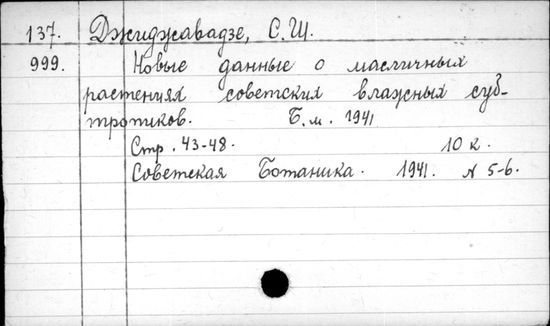 137. Джиджавадзе, С.Ш.
999. Новые данные о масличных
растениях советских влажных суб-
тропиков. Б.м. 1941
Стр. 43-48. 10 к.
Советская Ботаника. 1941. N 5-6.